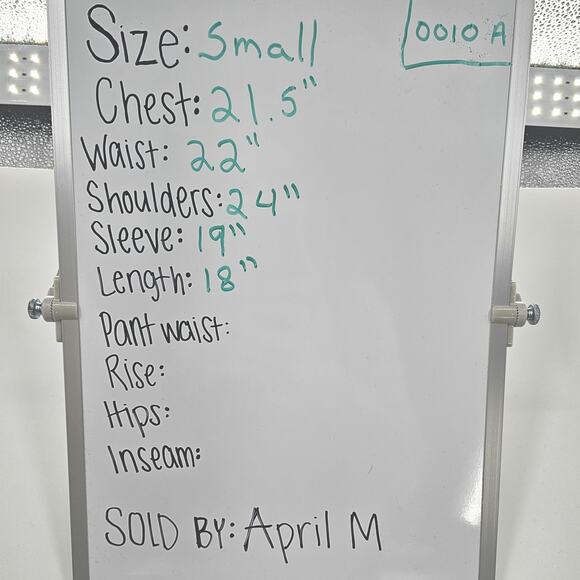 Size: Small
0010 A
Chest: 21.5"
Waist: 22"
Shoulders: 24"
Sleeve: 19"
Length: 18"
Pant waist:
Rise:
Hips:
Inseam:
SOLD BY: April M